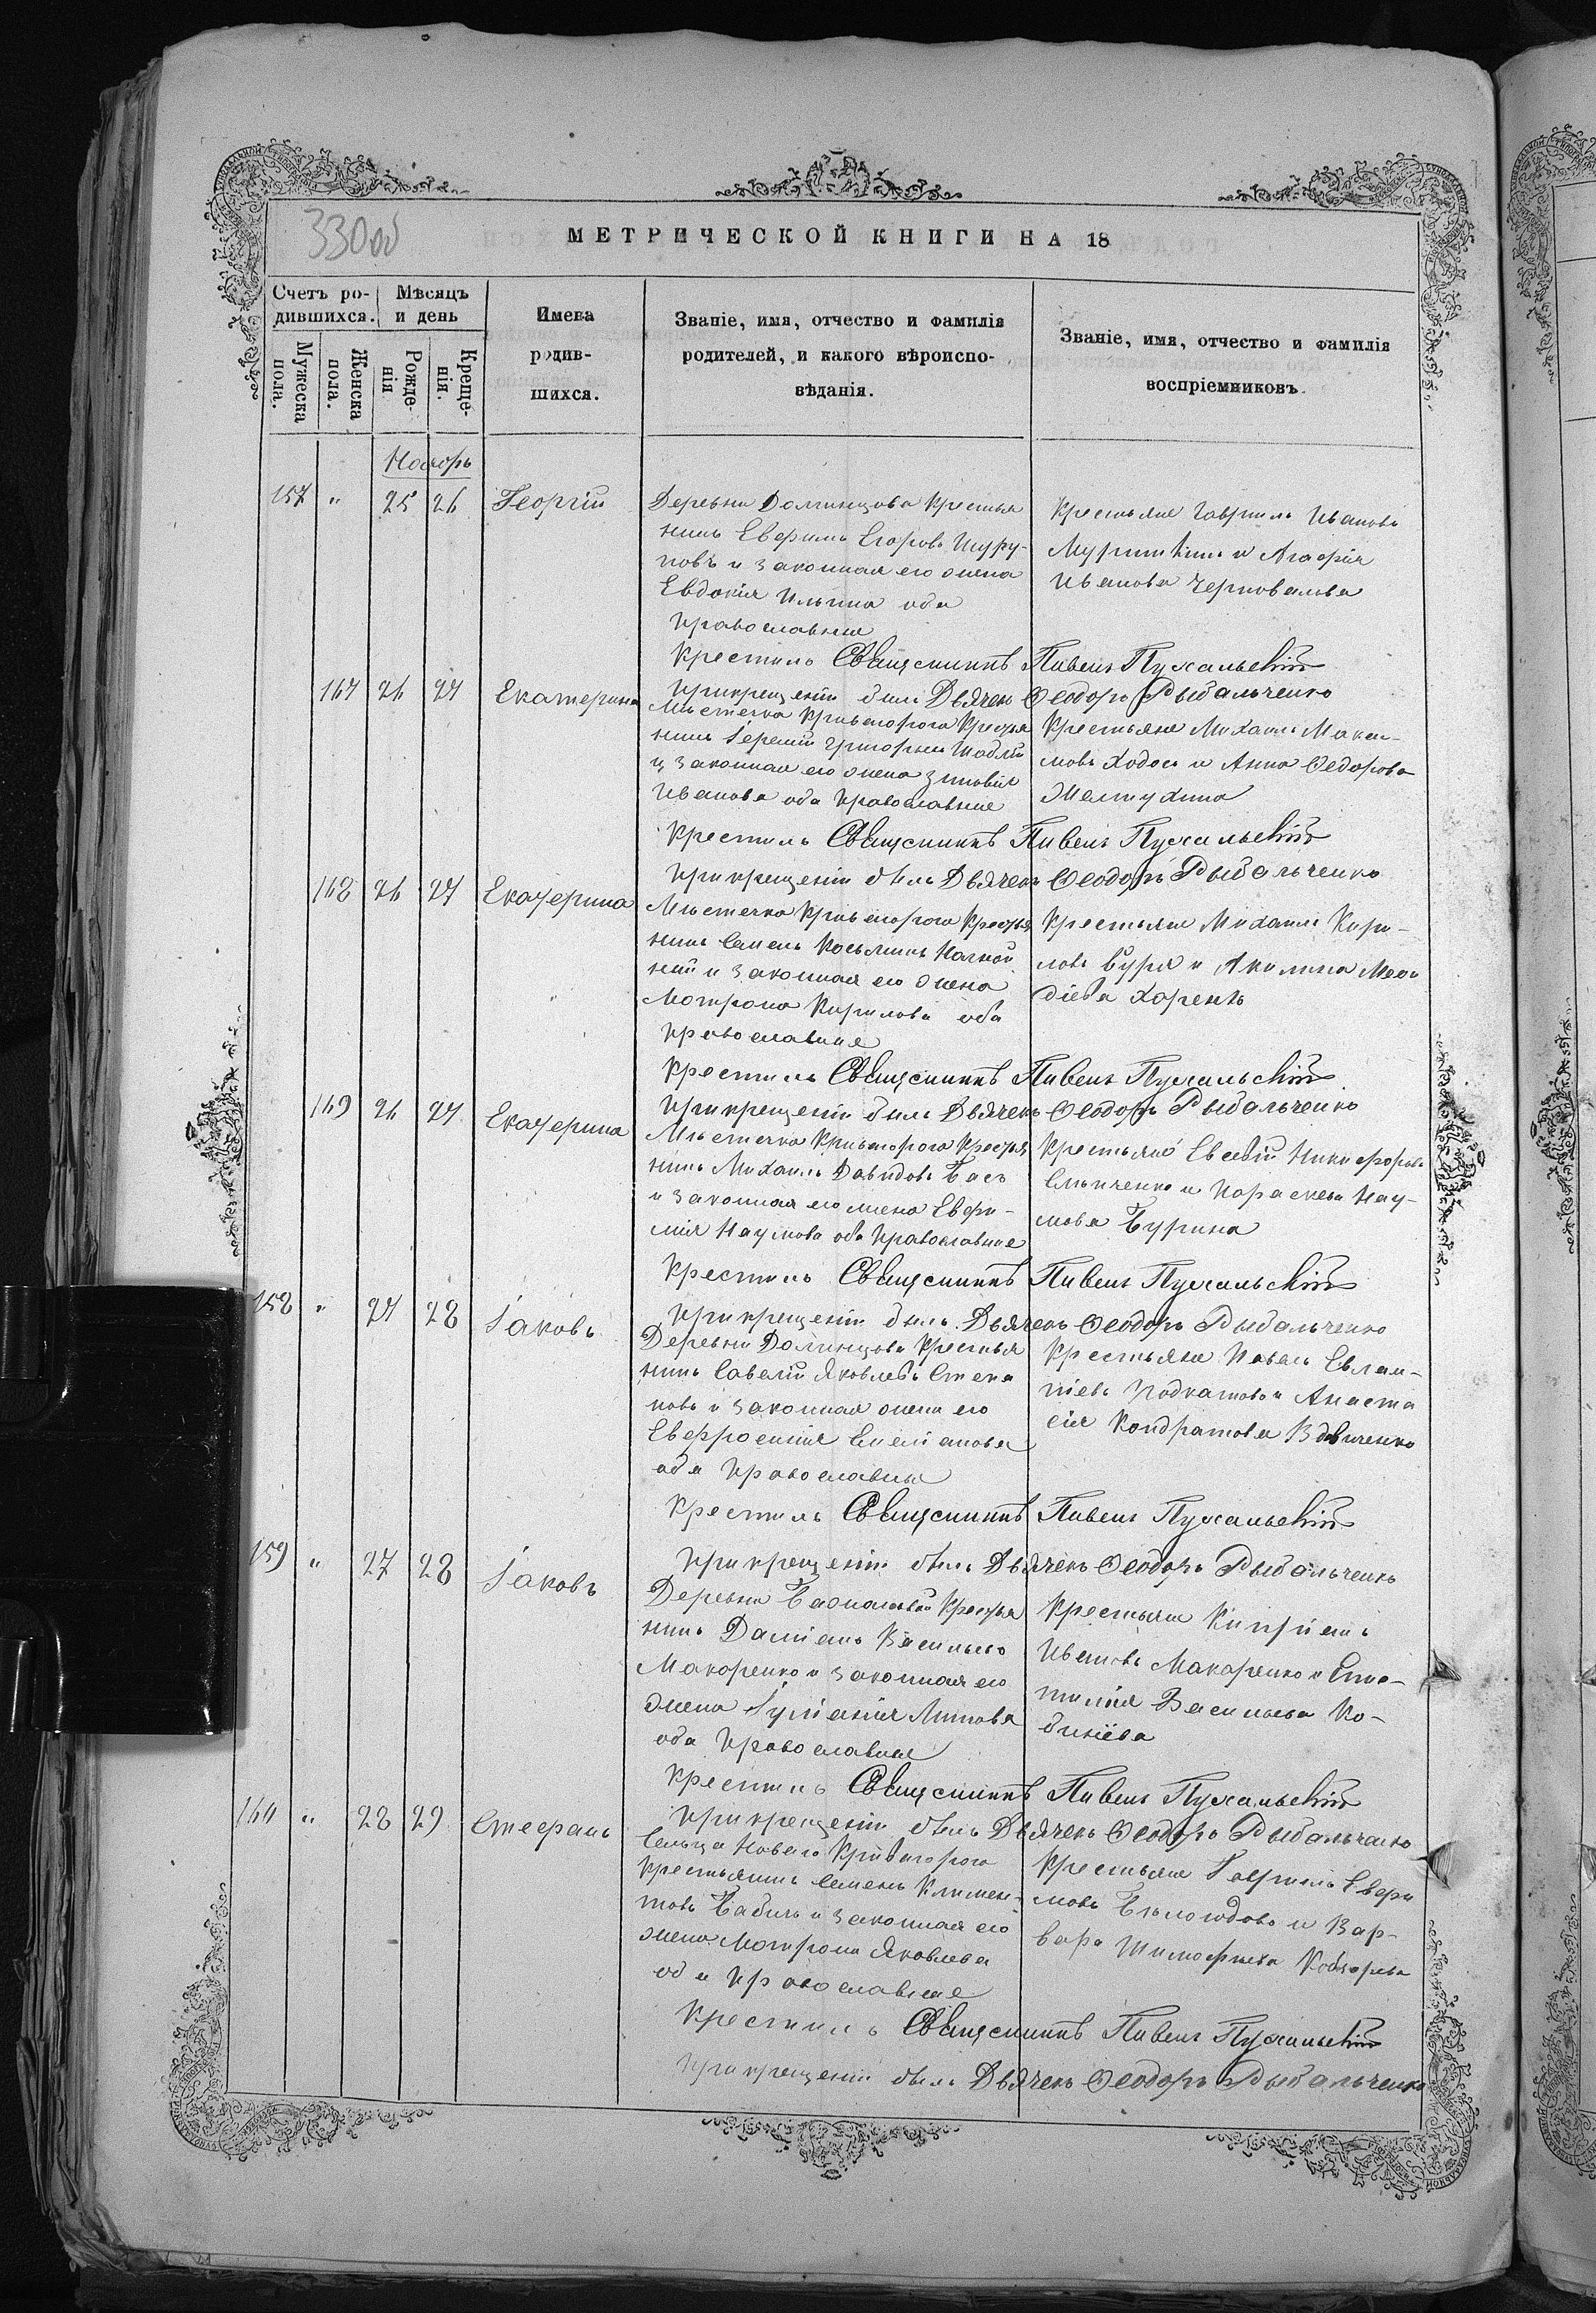 330 об
МЕТРИЧЕСКОЙ КНИГИ НА 18
Счетъ ро-
дившихся.
Мѣсяцъ
и день
Мужеска
пола.
Женска
пола.
Рожде-
нія
Креще-
нія.
Имена
родив-
шихся.
Званіе, имя, отчество и фамилія
родителей, и какого вѣроиспо-
вѣданія.
Званіе, имя, отчество и фамилія
воспріемниковъ.
Ноябрь
157 " 25 26 Георгій
Деревни Долинцова Крестья
нинъ Евфимъ Егоровъ Шуру-
повъ и законная его жена
Евдокія Ильина оба
православные
Крестьяне Гавріилъ Ивановъ
и Агафія
Иванова
Крестилъ Священникъ Павелъ Пухальскій
При крещеніи былъ Дьячекъ Ѳеодоръ Рыбальченко
167 26 27 Екатерина
Мѣстечка Кривого рога Крестья
нинъ Іеремій Григорьевъ
и законная его жена Зиновія
Иванова оба православные
Крестьяне Михаилъ Макси-
мовъ Ходосъ и Анна Ѳедорова
Желтухина
Крестилъ Священникъ Павелъ Пухальскій
При крещеніи былъ Дьячекъ Ѳеодоръ Рыбальченко
168 26 27 Екатерина
Мѣстечка Кривого рога Крестья
нинъ Семенъ Косьминъ
и законная его жена
Мотрона Кирилова оба
православные
Крестьяне Михаилъ Кири-
ловъ Буря и Акилина
Крестилъ Священникъ Павелъ Пухальскій
При крещеніи былъ Дьячекъ Ѳеодоръ Рыбальченко
169 26 27 Екатерина
Мѣстечка Кривого рога Крестья
нинъ Михаилъ Давидовъ Басъ
и законная его жена Евфи-
мія Наумова оба православные
Крестьяне Евсевій Никифоровъ
и Параскева Нау-
мова Бурина
Крестилъ Священникъ Павелъ Пухальскій
При крещеніи былъ Дьячекъ Ѳеодоръ Рыбальченко
158 " 27 28 Іаковъ
Деревни Долинцова Крестья
нинъ Савелій Яковлевъ Степа
новъ и законная жена его
Евфросинія Емеліанова
оба православные
Крестьяне Павелъ Евлам-
піевъ и Анаста
сія Кондратова Вдовиченко
Крестилъ Священникъ Павелъ Пухальскій
При крещеніи былъ Дьячекъ Ѳеодоръ Рыбальченко
159 " 27 28 Іаковъ
Деревни Крестья
нинъ Даміанъ Васильевъ
Макаренко и законная его
жена Іуліанія
оба православные
Крестьяне Кипріанъ
Ивановъ Макаренко и
Васильева
Крестилъ Священникъ Павелъ Пухальскій
При крещеніи былъ Дьячекъ Ѳеодоръ Рыбальченко
160 " 28 29 Стефанъ
Сельца Новаго Кривого рога
Крестьянинъ Семенъ Климен-
товъ Бабичъ и законная его
жена Мотрона Яковлева
оба православные
Крестьяне Гавріилъ Евфи
мовъ и Вар-
вара
Крестилъ Священникъ Павелъ Пухальскій
При крещеніи былъ Дьячекъ Ѳеодоръ Рыбальченко